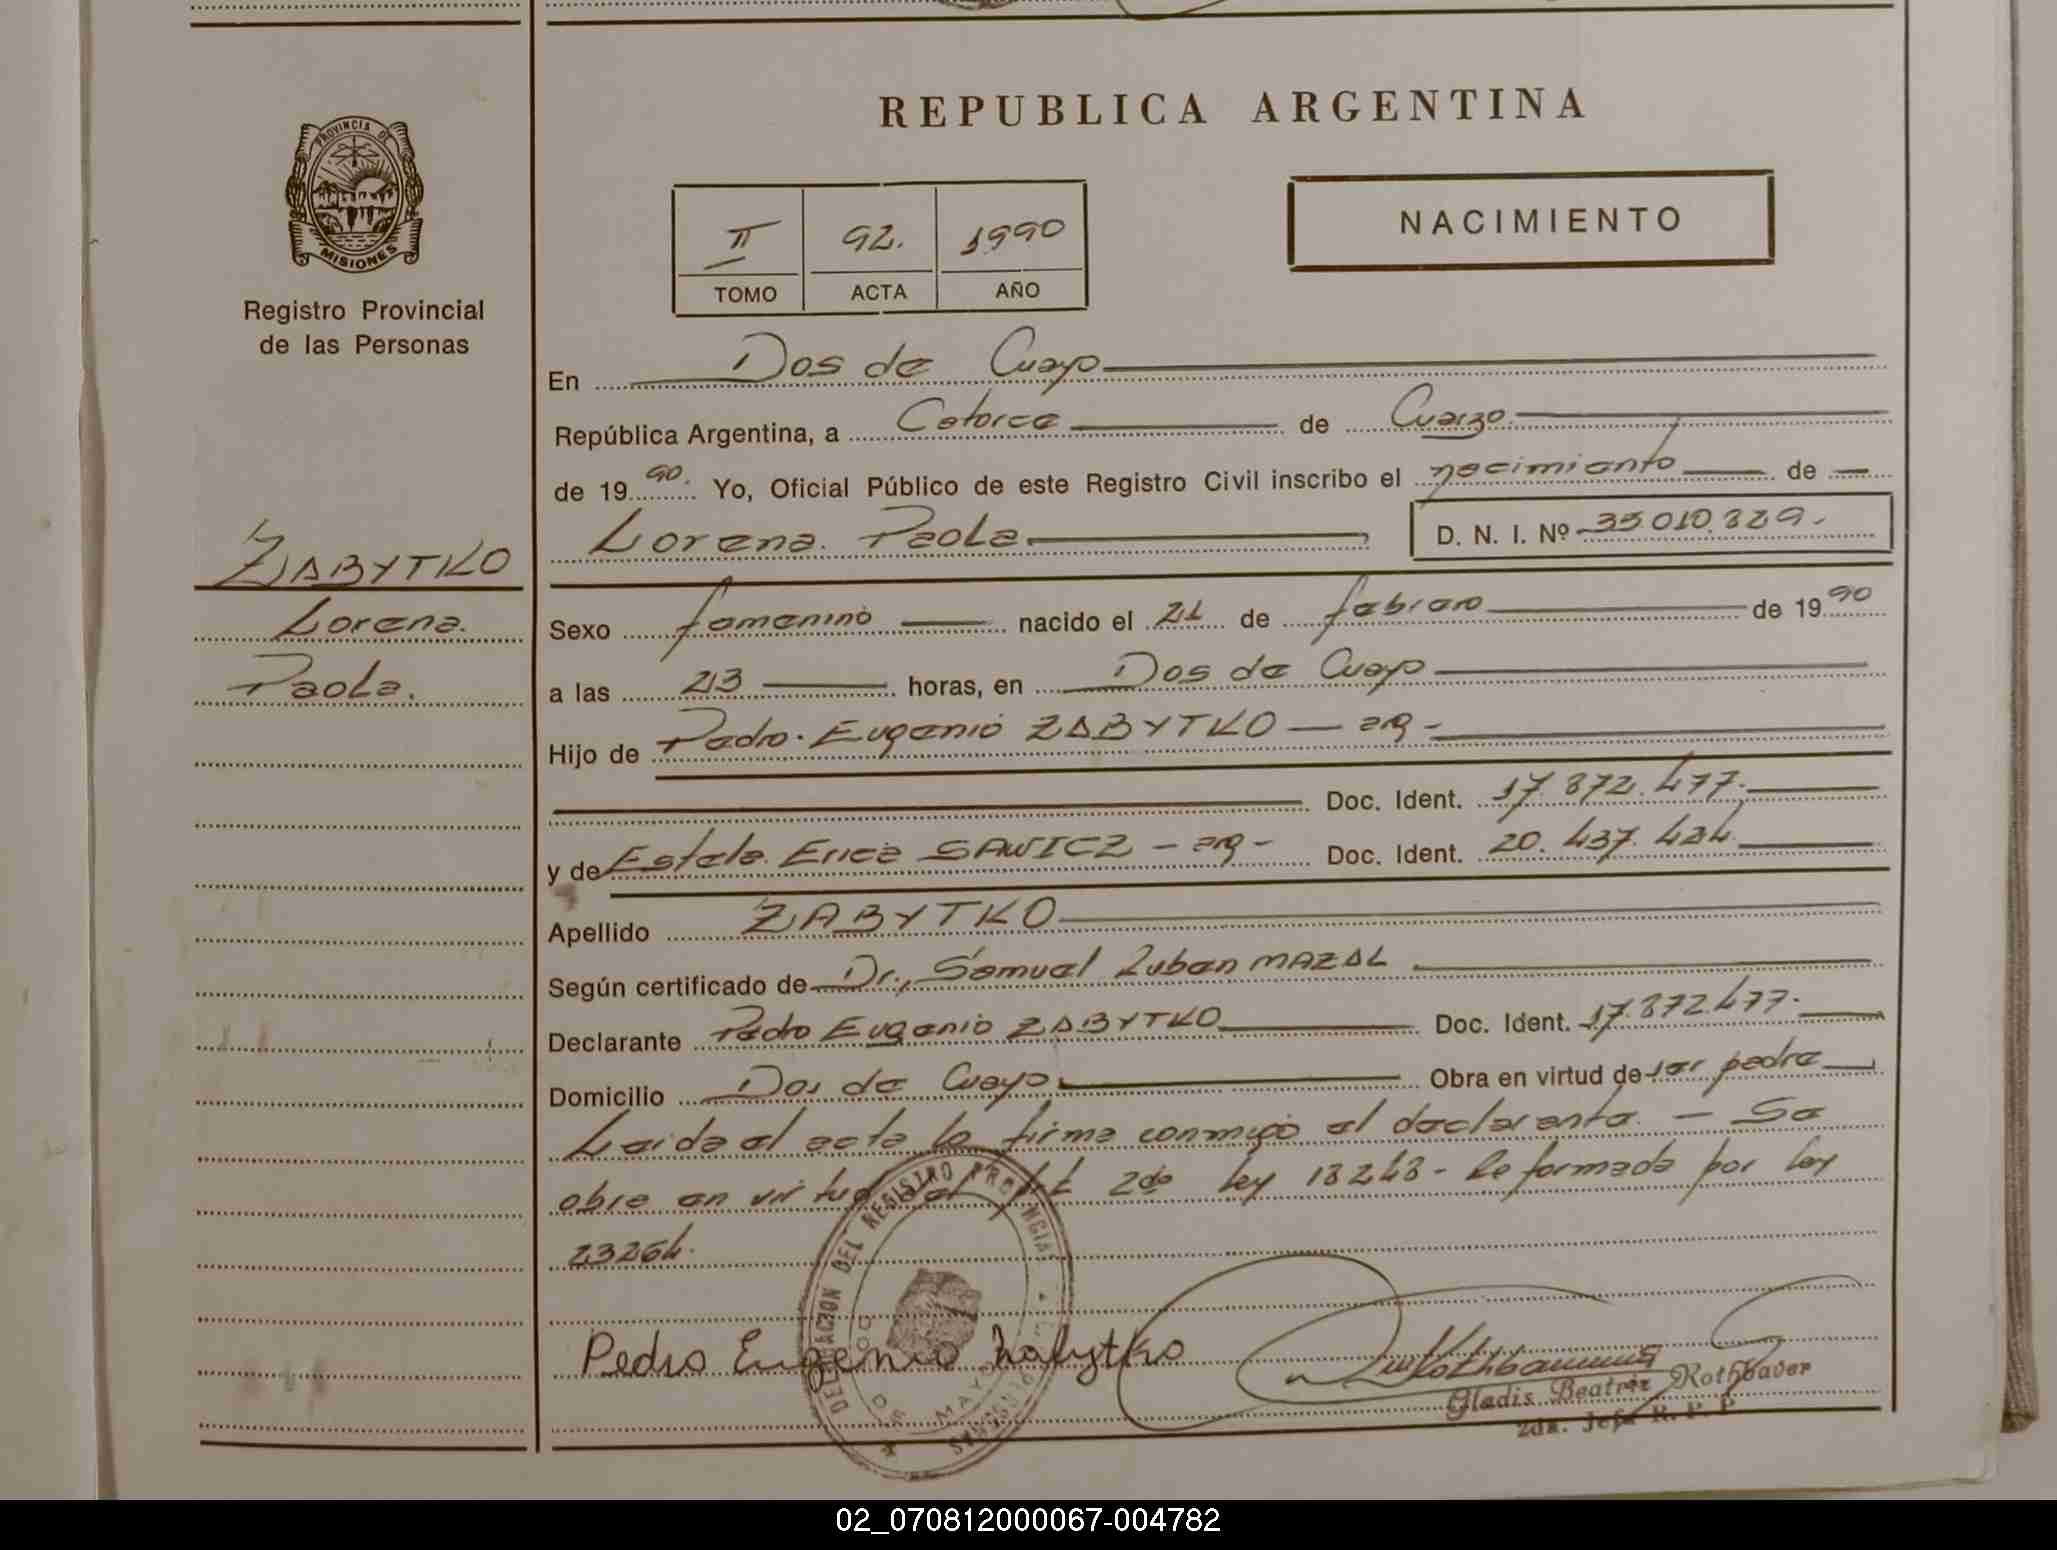 REPUBLICA ARGENTINA
PROVINCIA DE
MISIONES
Registro Provincial
de las Personas
NACIMIENTO
II 92. 1990
TOMO ACTA AÑO
En Dos de Mayo
República Argentina, a Catorce de Marzo
de 1990. Yo, Oficial Público de este Registro Civil inscribo el nacimiento de
Lorena Paola D. N. I. Nº 35.010.329.
ZABYTKO
Lorena.
Paola.
Sexo femenino nacido el 21 de febrero de 1990
a las 23 horas, en Dos de Mayo
Hijo de Pedro Eugenio ZABYTKO - arg -
Doc. Ident. 17.872.477.
y de Estela Erica SAWICZ - arg - Doc. Ident. 20.437.484.
Apellido ZABYTKO
Según certificado de Dr., Samuel Ruben MAZAL
Declarante Pedro Eugenio ZABYTKO Doc. Ident. 17.872.477.
Domicilio Dos de Mayo Obra en virtud de ser padre
Leida el acta la firma conmigo el declarante. - Se
obra en virtud al Art 2do ley 18248 - Reformada por ley
23264.
DELEGACION DEL REGISTRO PROVINCIAL
DOS DE MAYO
MISIONES
Pedro Eugenio Zabytko
Gladis Beatriz Rothbauer
2da. Jefa R. P. P.
02_070812000067-004782